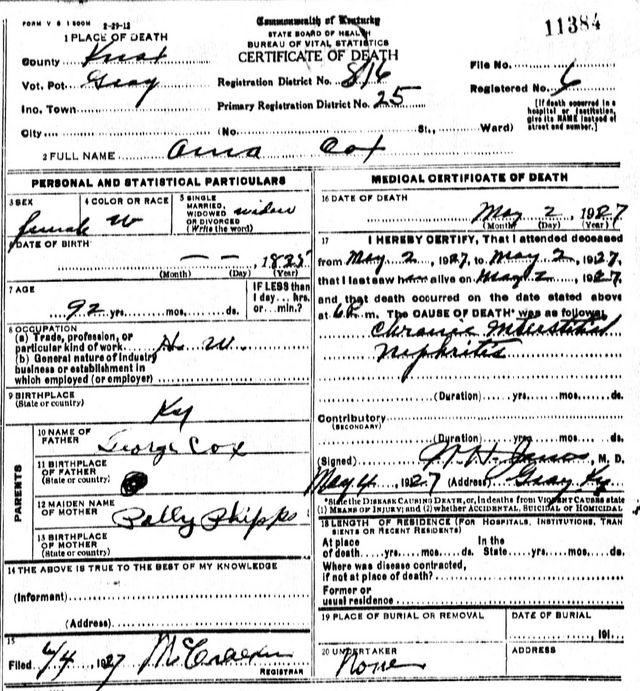 FORM V S 1 500M 2-29-12
Commonwealth of Kentucky
STATE BOARD OF HEALTH
BUREAU OF VITAL STATISTICS
CERTIFICATE OF DEATH
11384
1 PLACE OF DEATH
County Knox
Vot. Pct. Gray
Inc. Town
City
Registration District No. 816
Primary Registration District No. 25
(No. St., Ward)
File No.
Registered No. 6
[If death occurred in a hospital or institution, give its NAME instead of street and number.]
2 FULL NAME Cox
PERSONAL AND STATISTICAL PARTICULARS
3 SEX female
4 COLOR OR RACE W
5 SINGLE MARRIED, WIDOWED OR DIVORCED (Write the word) widow
DATE OF BIRTH
— — , 1835
(Month) (Day) (Year)
7 AGE
92 yrs. mos. ds.
IF LESS than 1 day... hrs. or... min.?
8 OCCUPATION
(a) Trade, profession, or particular kind of work H. W.
(b) General nature of industry business or establishment in which employed (or employer)
9 BIRTHPLACE
(State or country) Ky
PARENTS
10 NAME OF FATHER George Cox
11 BIRTHPLACE OF FATHER (State or country)
12 MAIDEN NAME OF MOTHER Sally Phipps
13 BIRTHPLACE OF MOTHER (State or country)
14 THE ABOVE IS TRUE TO THE BEST OF MY KNOWLEDGE
(Informant)
(Address)
15
Filed 6/4, 1927
REGISTRAR
MEDICAL CERTIFICATE OF DEATH
16 DATE OF DEATH
May 2, 1927
(Month) (Day) (Year)
17 I HEREBY CERTIFY, That I attended deceased
from May 2, 1927, to May 2, 1927,
that I last saw h alive on May 2, 1927.
and that death occurred on the date stated above
at 6 P. m. The CAUSE OF DEATH* was as follows:
Chronic Interstitial
Nephritis
(Duration) yrs. mos. ds.
Contributory
(SECONDARY)
(Duration) yrs. mos. ds.
(Signed) , M. D.
May 4 1927 (Address) Gray Ky
*State the DISEASE CAUSING DEATH, or, in deaths from VIOLENT CAUSES state
(1) MEANS OF INJURY; and (2) whether ACCIDENTAL, SUICIDAL OR HOMICIDAL
18 LENGTH OF RESIDENCE (FOR HOSPITALS, INSTITUTIONS, TRANSIENTS OR RECENT RESIDENTS)
At place of death yrs. mos. ds. In the State yrs. mos. ds.
Where was disease contracted, if not at place of death?
Former or usual residence
19 PLACE OF BURIAL OR REMOVAL
DATE OF BURIAL
, 191
20 UNDERTAKER
None
ADDRESS